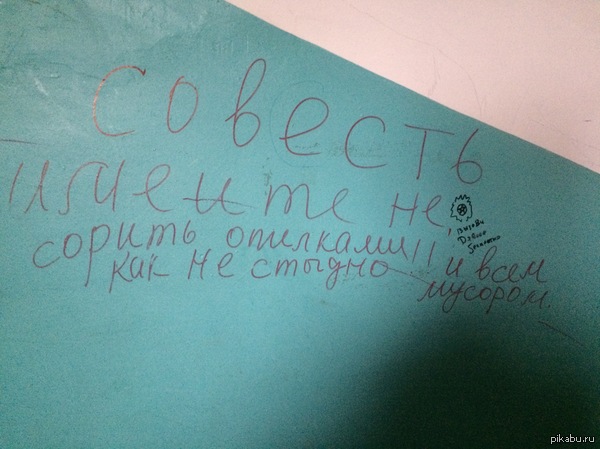 Совесть
имеите не,
сорить опилками!! и всем
как не стыдно мусором.
вызови
pikabu.ru